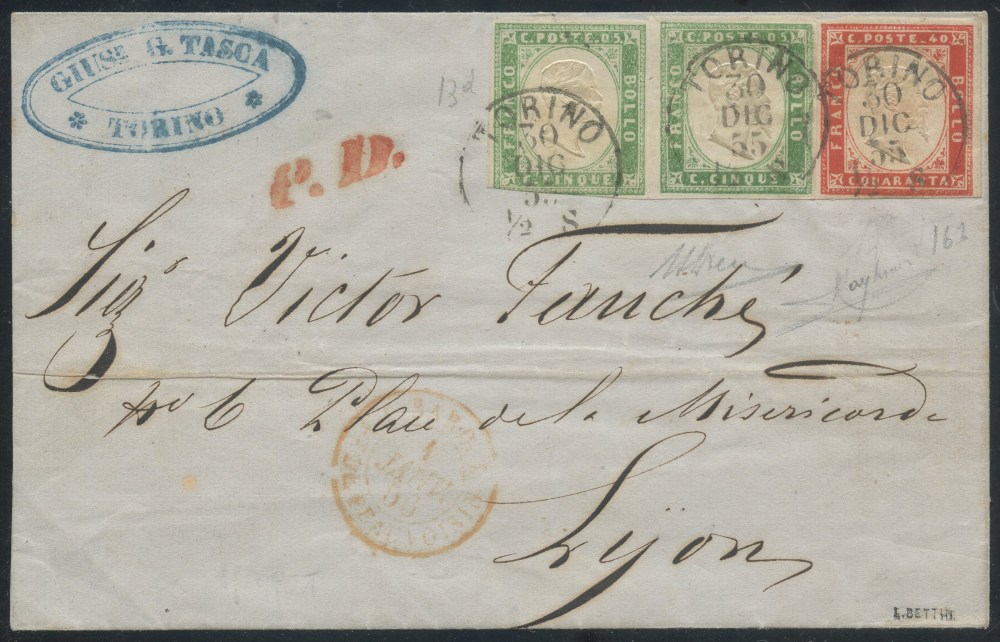 GIUSE G. TASCA
TORINO
P.D.
13d
C. POSTE. 05
FRANCO
BOLLO
C. CINQUE
C. POSTE. 05
FRANCO
BOLLO
C. CINQUE
C. POSTE. 40
FRANCO
BOLLO
C. QUARANTA
TORINO
30
DIC
½ S
TORINO
30
DIC
55
TORINO
30
DIC
55
Sigr Victor Fauché
No 6 Place de la Misericorde
Lyon
1
JANV
56
BEAUVOISIN